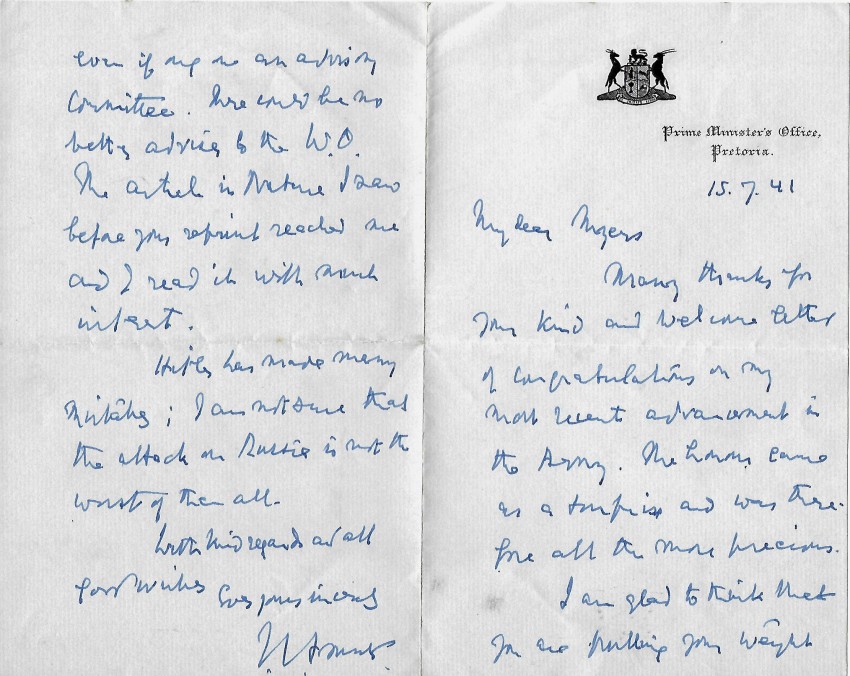 Prime Minister's Office,
Pretoria.
15.7.41
My dear Myers
Many thanks for
your kind and welcome letter
of congratulations on my
most recent advancement in
the Army. The honour came
as a surprise and was there-
fore all the more precious.
I am glad to think that
you are pulling your weight
even if only on an advisory
Committee. There could be no
better adviser to the W.O.
The article in Nature I saw
before your reprint reached me
and I read it with much
interest.
Hitler has made many
mistakes; I am not sure that
the attack on Russia is not the
worst of them all.
With kind regards and all
good wishes
Ever yours sincerely
J C Smuts